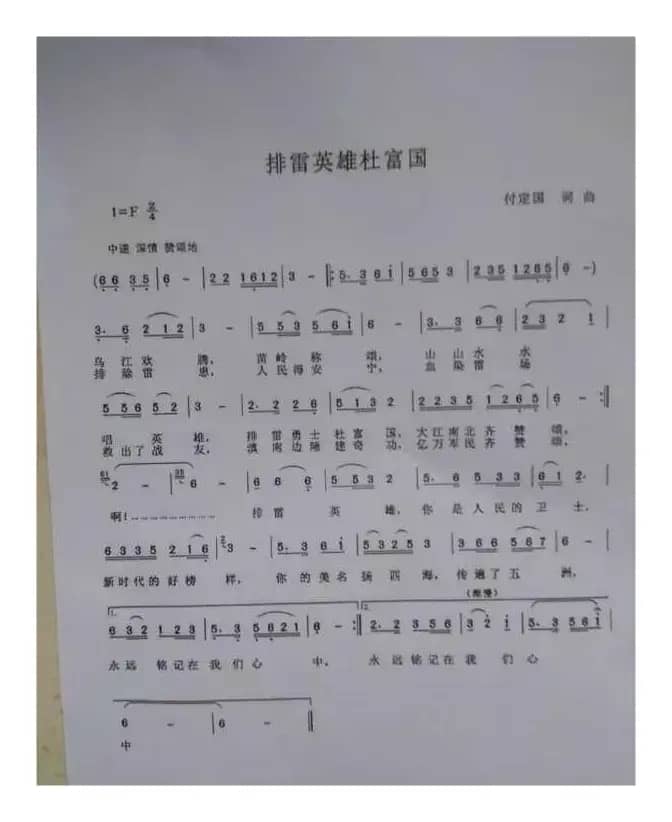 排雷英雄杜富国
付定国 词 曲
1=F 2/4
中速 深情 赞颂地
(6 6 3 5 | 6 - | 2 2 1612 | 3 - |: 5. 3 6 i | 5 6 5 3 | 2 3 5 1 2 6 5 | 6 -)
3. 6 2 1 2 | 3 - | 5 5 3 5 6 i | 6 - | 3. 3 6 6 | 2 3 2 1
乌江欢腾, 苗岭称颂, 山山水水
排除雷患, 人民得安宁, 血染雷场
5 5 6 5 2 | 3 - | 2. 2 2 6 | 5 1 3 2 | 2 2 3 5 1 2 6 5 | 6 - :|
唱英雄, 排雷勇士杜富国, 大江南北齐赞颂,
救出了战友, 滇南边陲建奇功, 亿万军民齐赞颂,
2 - | 6 - | 6 6 6 | 5 5 3 2 | 5. 6 5 3 3 | 6 1 2.
啊!…………… 排雷英雄, 你是人民的卫士,
6 3 3 5 2 1 6 | 3 - | 5. 3 6 i | 5 3 2 5 3 | 3 6 6 5 6 7 | 6 -
新时代的好榜样, 你的美名扬四海, 传遍了五洲,
(渐慢)
1. 2.
6 3 2 1 2 3 | 5. 3 5 6 2 1 | 6 - :| 2. 2 3 5 6 | 3 2 i | 5. 3 5 6 i
永远铭记在我们心中, 永远铭记在我们心
6 - | 6 - ‖
中